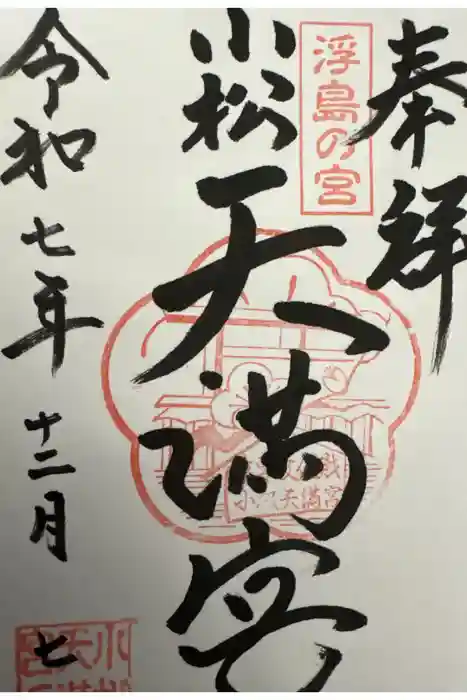 奉拝
浮島の宮
小松天満宮
小松天満宮
令和七年十二月七